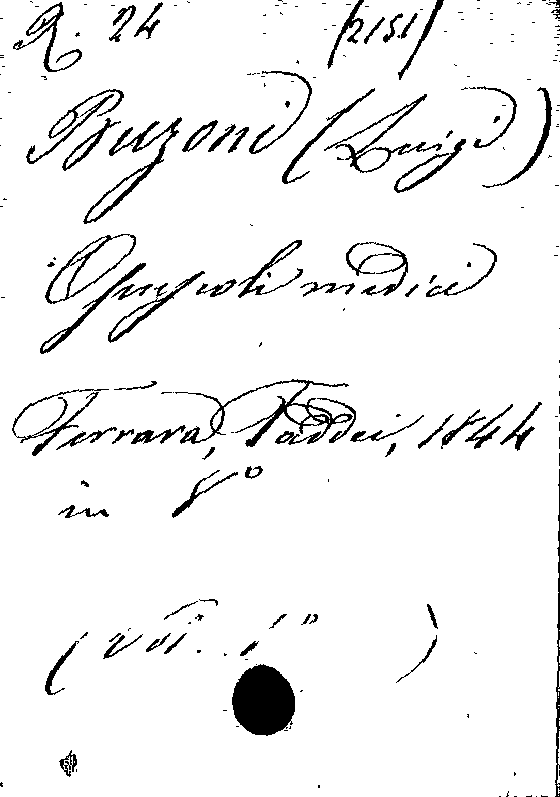 R. 24 (2151)
Buzoni (Luigi)
Opuscoli medici
Ferrara, Taddei, 1844
in 8°
(vol. 1°)